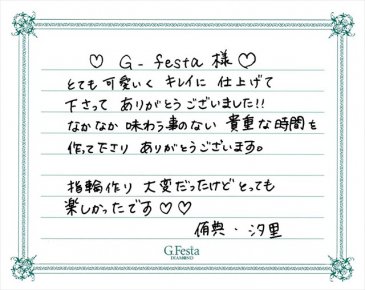 ♡ G-festa 様 ♡
とても 可愛いく キレイに 仕上げて
下さって ありがとうございました!!
なかなか 味わう事のない 貴重な時間を
作って下さり ありがとうございます。
指輪作り 大変だったけど とっても
楽しかったです ♡♡
侑典・汐里
G.Festa
DIAMOND